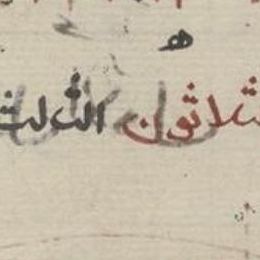 ه
ثلاثون الثلث